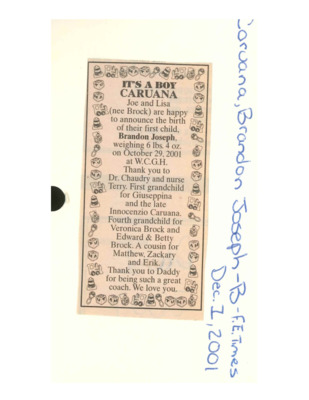 IT'S A BOY
CARUANA
Joe and Lisa
(nee Brock) are happy
to announce the birth
of their first child,
Brandon Joseph,
weighing 6 lbs. 4 oz.
on October 29, 2001
at W.C.G.H.
Thank you to
Dr. Chaudry and nurse
Terry. First grandchild
for Giuseppina
and the late
Innocenzio Caruana.
Fourth grandchild for
Veronica Brock and
Edward & Betty
Brock. A cousin for
Matthew, Zackary
and Erik.
Thank you to Daddy
for being such a great
coach. We love you.
Caruana, Brandon Joseph-B-F.E. Times
Dec. 1, 2001